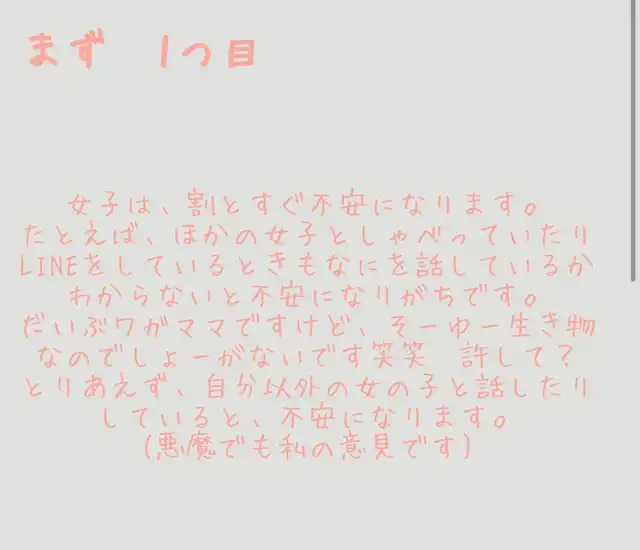 まず　1つ目
女子は、割とすぐ不安になります。
たとえば、ほかの女子としゃべっていたり
LINEをしているときもなにを話しているか
わからないと不安になりがちです。
だいぶワガママですけど、そーゆー生き物
なのでしょーがないです笑笑　許して？
とりあえず、自分以外の女の子と話したり
していると、不安になります。
(悪魔でも私の意見です)